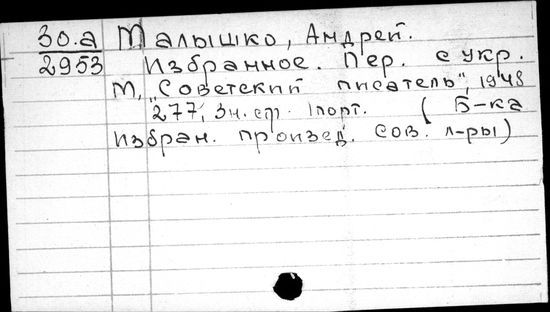 30.а Малышко, Андрей.
2953 Избранное. Пер. с укр.
М, "Советский писатель", 1948
277, 3н. ст. 1порт. ( Б-ка
избран. произед. сов. л-ры)